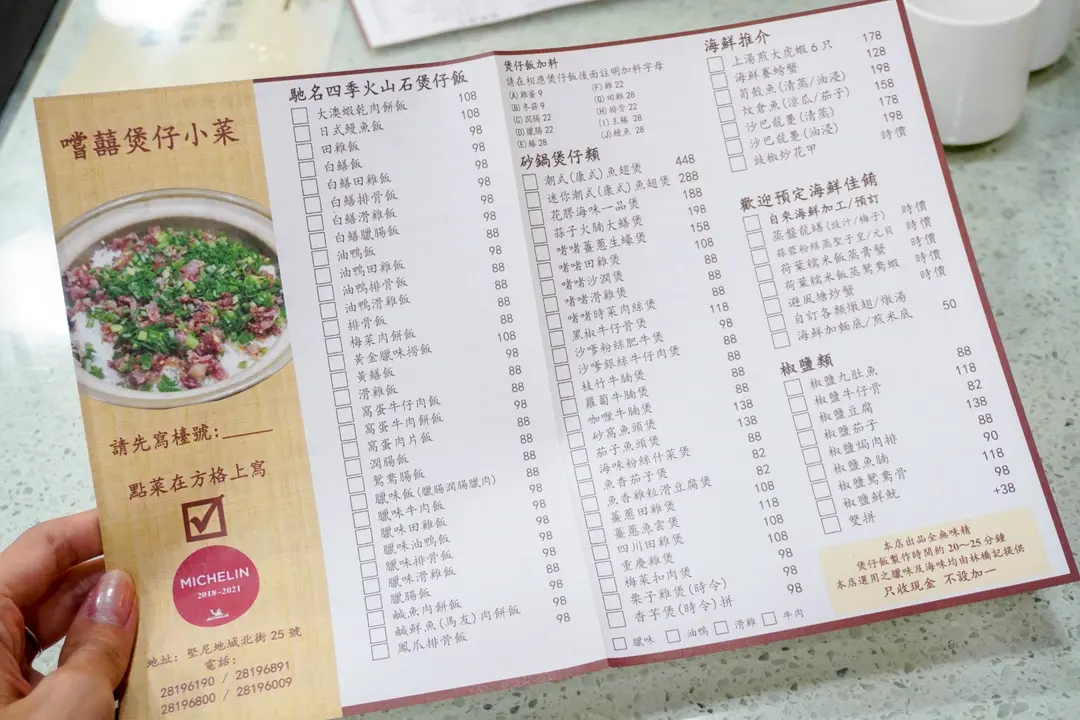 嚐囍煲仔小菜
請先寫檯號:____
點菜在方格上寫
MICHELIN
2018-2021
地址: 堅尼地城北街 25 號
電話:
28196190 / 28196891
28196800 / 28196009
馳名四季火山石煲仔飯
大澳蝦乾肉餅飯 108
日式鰻魚飯 108
田雞飯 98
白鱔飯 98
白鱔田雞飯 98
白鱔排骨飯 98
白鱔滑雞飯 98
白鱔臘腸飯 98
油鴨飯 98
油鴨田雞飯 88
油鴨排骨飯 88
油鴨滑雞飯 88
排骨飯 88
梅菜肉餅飯 88
黃金臘味撈飯 108
黃鱔飯 98
滑雞飯 88
窩蛋牛仔肉飯 88
窩蛋牛肉餅飯 98
窩蛋肉片飯 88
潤腸飯 88
鴛鴦腸飯 88
臘味飯(臘腸潤腸臘肉) 88
臘味牛肉飯 98
臘味田雞飯 98
臘味油鴨飯 98
臘味排骨飯 98
臘味滑雞飯 98
臘腸飯 98
鹹魚肉餅飯 88
鹹鮮魚(馬友)肉餅飯 98
鳳爪排骨飯 98
煲仔飯加料
請在相應煲仔飯後面註明加料字母
(A) 雞蛋 9 (F) 雞 22
(B) 冬菇 9 (G) 田雞 28
(C) 潤腸 22 (H) 排骨 22
(D) 臘腸 22 (I) 玉鱔 28
(E) 鱔 28 (J) 鰻魚 28
砂鍋煲仔類
潮式(廉式)魚翅煲 448
迷你潮式(廉式)魚翅煲 288
花膠海味一品煲 188
蒜子火腩大鱔煲 198
啫啫薑蔥生蠔煲 158
啫啫田雞煲 108
啫啫沙潤煲 88
啫啫滑雞煲 88
啫啫時菜肉絲煲 88
黑椒牛仔骨煲 118
沙嗲粉絲肥牛煲 98
沙嗲銀絲牛仔肉煲 88
枝竹牛腩煲 88
蘿蔔牛腩煲 88
咖喱牛腩煲 88
砂窩魚頭煲 138
茄子魚頭煲 138
海味粉絲什菜煲 88
魚香茄子煲 82
魚香雞粒滑豆腐煲 82
薑蔥田雞煲 108
薑蔥魚雲煲 118
四川田雞煲 108
重慶雞煲 108
梅菜扣肉煲 98
栗子雞煲(時令) 98
香芋煲(時令)拼 98
臘味 油鴨 滑雞 牛肉
海鮮推介
上湯煎大虎蝦 6 只 178
海鮮賽螃蟹 128
筍殼魚(清蒸/油浸) 198
坟倉魚(涼瓜/茄子) 158
沙巴龍躉(清蒸) 178
沙巴龍躉(油浸) 198
豉椒炒花甲 時價
歡迎預定海鮮佳餚
自來海鮮加工/預訂
蒸盤龍鱔(豉汁/梅子) 時價
蒜蓉粉絲蒸聖子皇/元貝 時價
荷葉糯米飯蒸膏蟹 時價
荷葉糯米飯蒸鴛鴦蝦 時價
避風塘炒蟹 時價
自訂各類燉翅/燉湯
海鮮加麵底/煎米底 50
椒鹽類
椒鹽九肚魚 88
椒鹽牛仔骨 118
椒鹽豆腐 82
椒鹽茄子 138
椒鹽焗肉排 88
椒鹽魚腩 90
椒鹽鴛鴦骨 118
椒鹽鮮魷 98
雙拼 +38
本店出品全無味精
煲仔飯製作時間約 20～25 分鐘
本店選用之臘味及海味均由林橋記提供
只收現金 不設加一